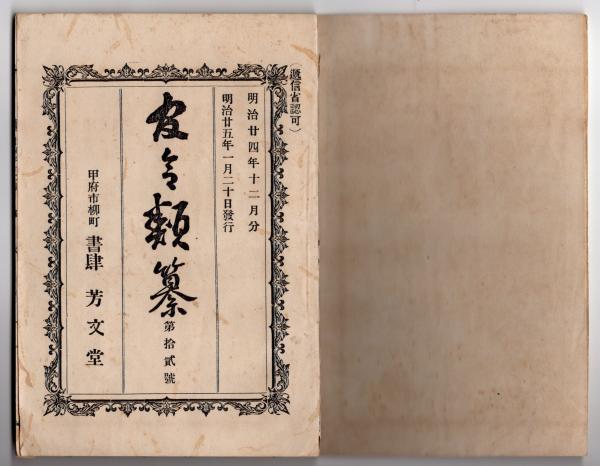 （遞信省認可）
明治廿四年十二月分
明治廿五年一月二十日發行
令類纂
第拾貳號
甲府市柳町
書肆 芳文堂